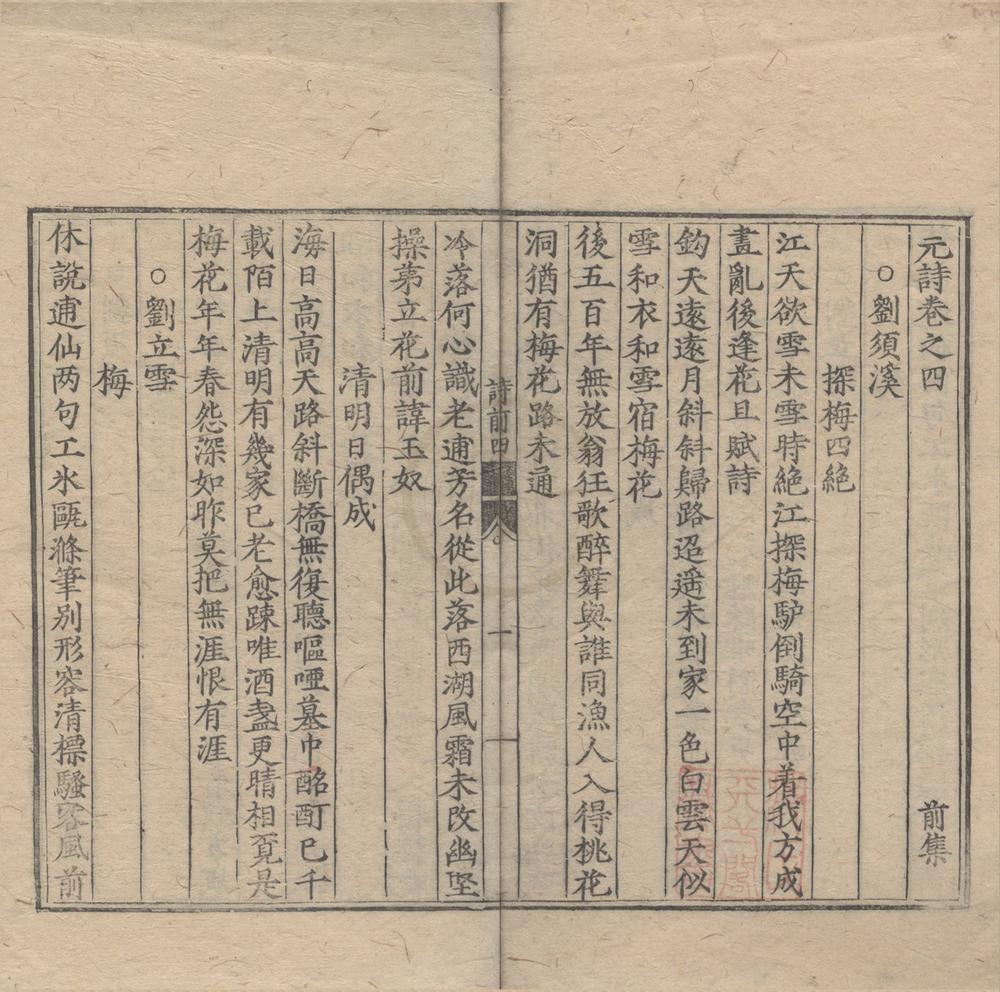 元詩卷之四 前集
○劉須溪
探梅四絶
江天欲雪未雪時絶江探梅驢倒騎空中着我方成
畫亂後逢花且賦詩
鈎天遠遠月斜斜歸路迢遥未到家一色白雲天似
雪和衣和雪宿梅花
後五百年無放翁狂歌醉舞與誰同漁人入得桃花
洞猶有梅花路未通
詩前四 一
冷落何心識老逋芳名從此落西湖風霜未改幽堅
操第立花前諱玉奴
清明日偶成
海日高高天路斜斷橋無復聽嘔啞墓巾酩酊已千
載陌上清明有幾家已老愈踈唯酒盞更晴相覔是
梅花年年春怨深如昨莫把無涯恨有涯
○劉立雪
梅
休說逋仙两句工氷甌滌筆别形容清標騷客風前